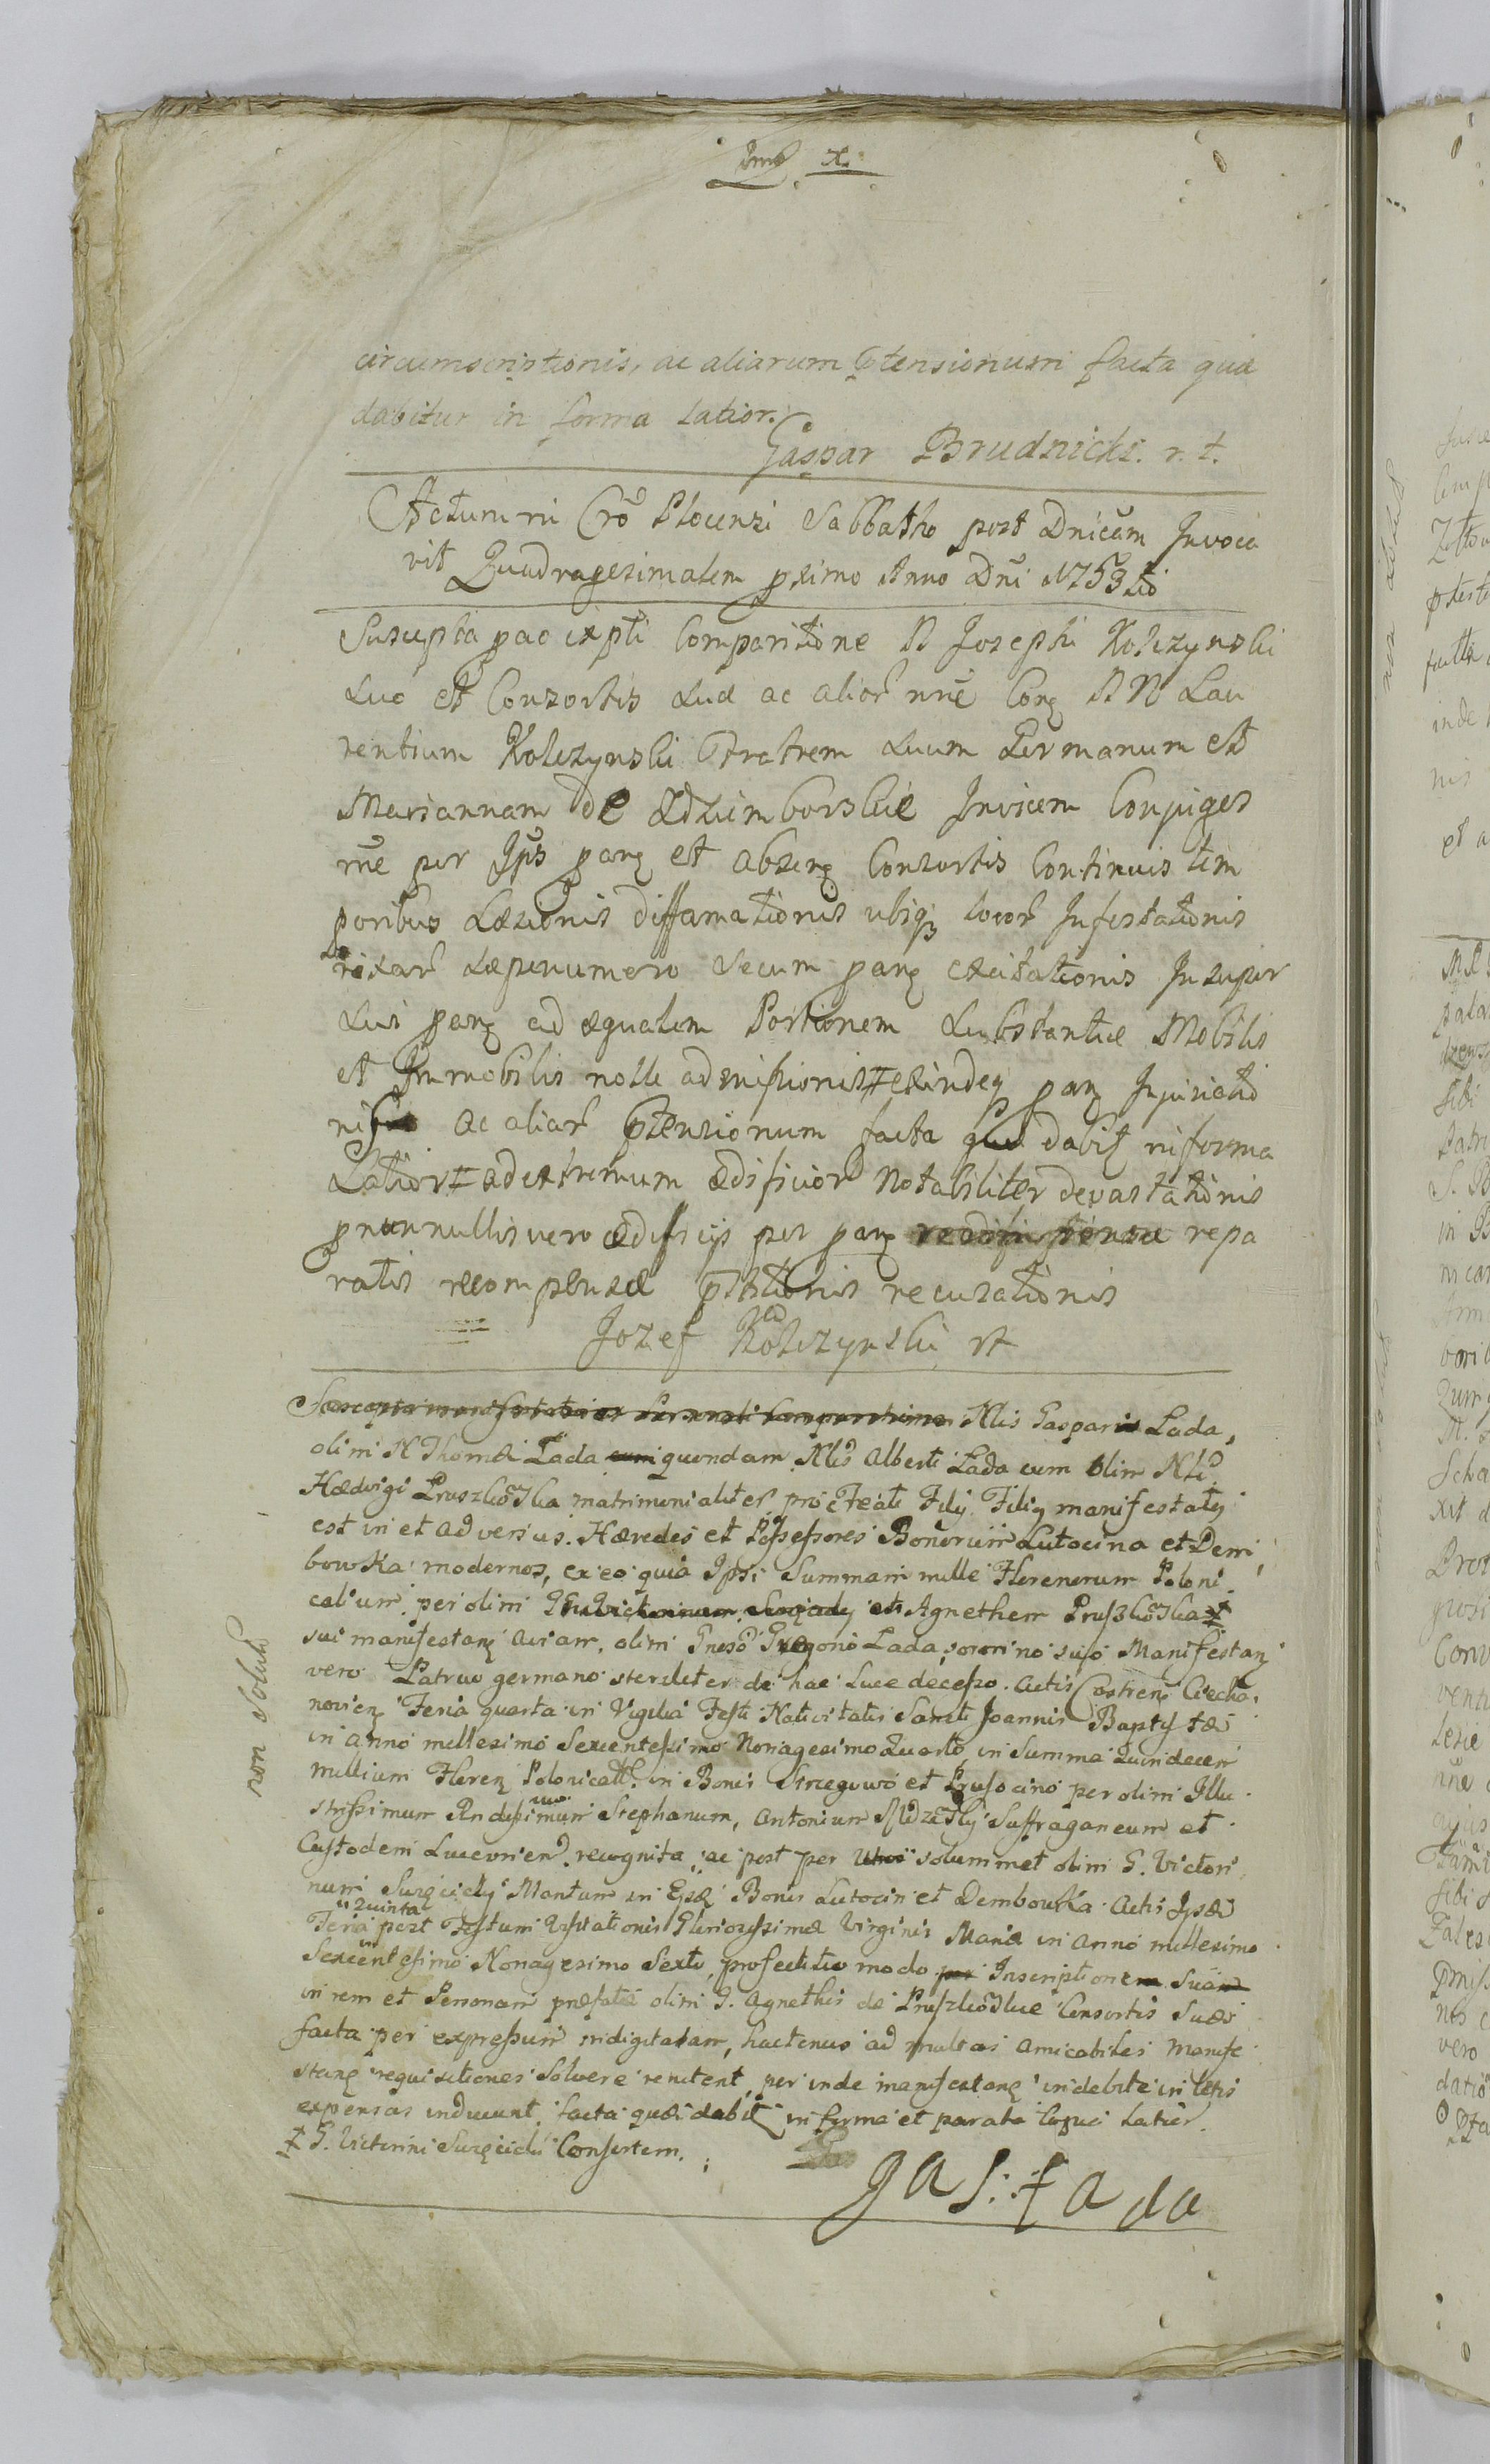 circumscriptionis, ac aliarum ptensionum facta quæ
dabitur in forma latior.
Gaspar Brudnicki. r. t.
Actum in Cro Plocensi Sabbatho post Dnicam Invoca
vit Quadragesimalem primo Anno Dni 1753tio
Suscepta pac expti Comparitione N Josephi Kolczynski
suo et Consortis suæ ac alior nne Conz N N Lau
rentium Kolczynski Fratrem suum Germanum et
Mariannam de Zdzimborskie Invicem Conjuges
me per Ips panz et absenz Consortis Continuis tem
poribus Læsionis diffamationis ubiqz locor Infestationis
rixar sæpenumero secum panz excitationis Insuper
sui panz ad æqualem Portionem substantiæ Mobilis
et Immobilis nolle admissionis ‡ exindeq panz Injuriatio
nis ac aliar ptensionum facta quæ dabit in forma
Latior ‡ ad extremum ædificior notabiliter devastationis
pnonnullis vero ædificijs per panz repa
ratis recompensæ pstitionis recusationis
Jozef Kolczynski rt
Suscepta manifestatio Personali Comparitione Nlis Gasparis Lada,
olim N Thomæ Lada quondam Nlis Alberti Lada cum olim Nli
Hædvigi Pruszkoska matrimonialiter procreati Filij Filiy manifestatq
est in et adversus Hæredes et Possessores Bonorum Lutocina et Dem
bowka modernos, ex eo quia Ipsi Summam mille Florenorum Poloni
calium per olim G Agnethem Pruszkoska ‡
sui manifestanz aviam, olim Gneso Gregorio Lada, sororino suo Manifestanz
vero Patruo germano steriliter de hac Luce decesso. Actis Castrenz Ciecha
novienz Feria quarta in Vigilia Festi Nativitatis Sancti Joannis Baptistæ
in anno millesimo Sexcentesimo Nonagesimo Quarto, in Summa Quindecem
millium Florenz Polonicall. in Bonis Srzegowo et Prusocino per olim Illu
strissimum Rndissimum Stephanum, Antonium Mdzesky Suffraganeum et
Custodem Luceorien. recognita, ac post per solummet olim G. Victori
num Surzcicky Mantum in Bonis Lutocin et Dembowka Actis Ipsæ
Feria quinta post Festum Visitationis Gloriosissimæ Virginis Mariæ in anno millesimo
Sexcentesimo Nonagesimo Sexto, profectitio modo per Inscriptionem Suam
in rem et Personam præfatæ olim G. Agnethis de Pruszkoskie Consortis Suæ
facta per expressum indigitatam, hactenus ad multas amicabiles Manife
stanz requisitiones Solvere renitent, per inde manifestanz indebite in litis
expensas inducunt facta quæ dabit in forma et parata Copia Latior.
‡ G. Victorini Surzcicki Consortem.
gas: Łada
non solut